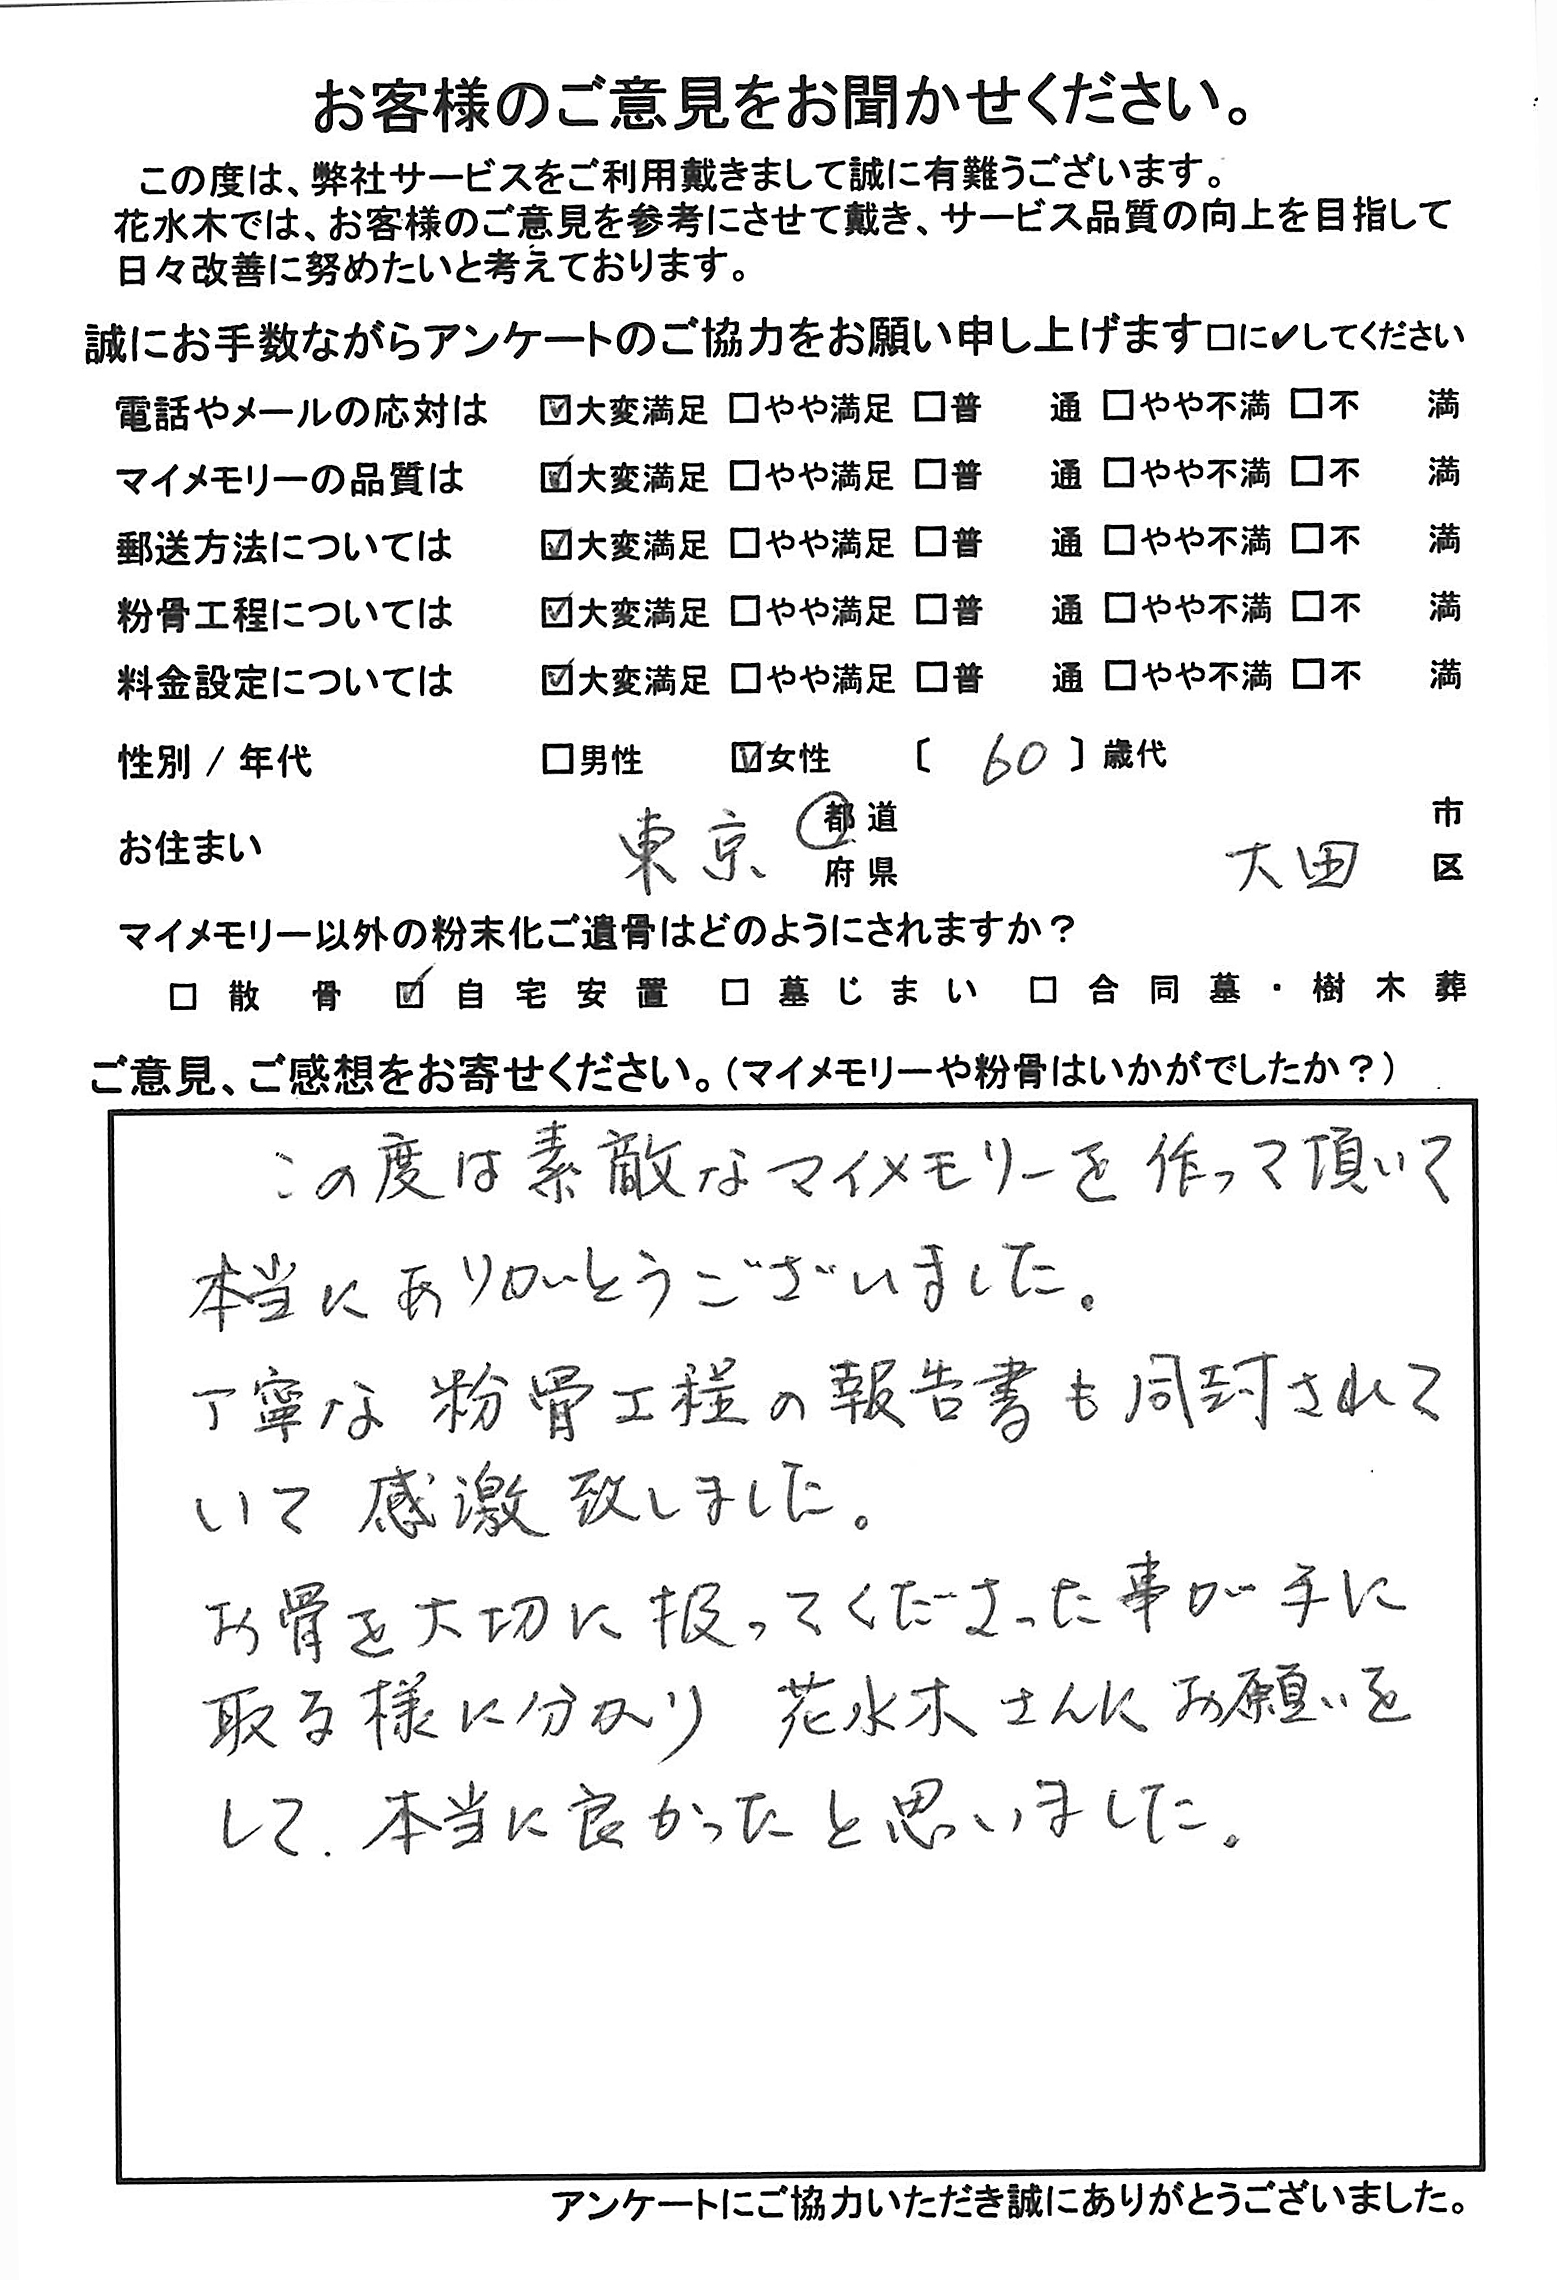 お客様のご意見をお聞かせください。
この度は、弊社サービスをご利用戴きまして誠に有難うございます。
花水木では、お客様のご意見を参考にさせて戴き、サービス品質の向上を目指して
日々改善に努めたいと考えております。
誠にお手数ながらアンケートのご協力をお願い申し上げます□に✔してください
電話やメールの応対は ☑大変満足 □やや満足 □普 通 □やや不満 □不 満
マイメモリーの品質は ☑大変満足 □やや満足 □普 通 □やや不満 □不 満
郵送方法については ☑大変満足 □やや満足 □普 通 □やや不満 □不 満
粉骨工程については ☑大変満足 □やや満足 □普 通 □やや不満 □不 満
料金設定については ☑大変満足 □やや満足 □普 通 □やや不満 □不 満
性別 / 年代 □男性 ☑女性 〔 60 〕歳代
お住まい 東京 都道府県 大田 市区
マイメモリー以外の粉末化ご遺骨はどのようにされますか？
□ 散骨 ☑ 自宅安置 □ 墓じまい □ 合同墓・樹木葬
ご意見、ご感想をお寄せください。(マイメモリーや粉骨はいかがでしたか？)
この度は素敵なマイメモリーを作って頂いて
本当にありがとうございました。
丁寧な粉骨工程の報告書も同封されて
いて感激致しました。
お骨を大切に扱ってくださった事が手に
取る様に分かり 花水木さんにお願いを
して、本当に良かったと思いました。
アンケートにご協力いただき誠にありがとうございました。